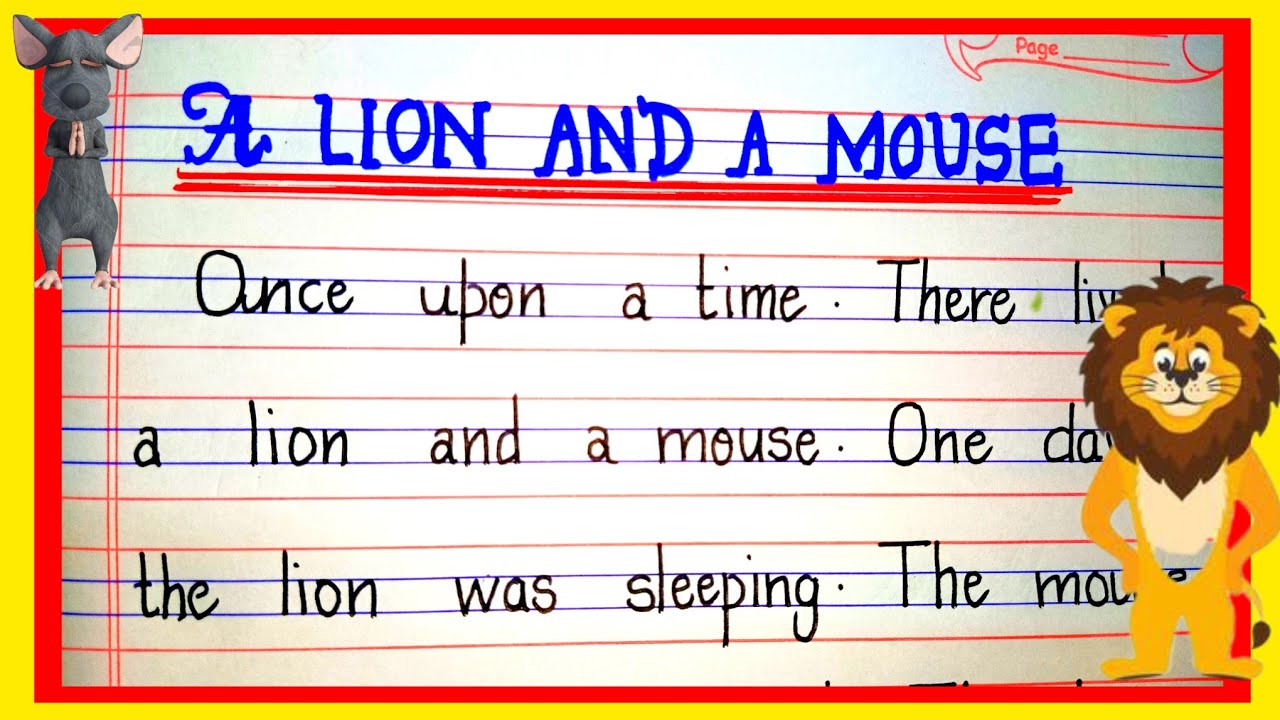 Page
A LION AND A MOUSE
Once upon a time. There lived
a lion and a mouse. One day
the lion was sleeping. The mouse